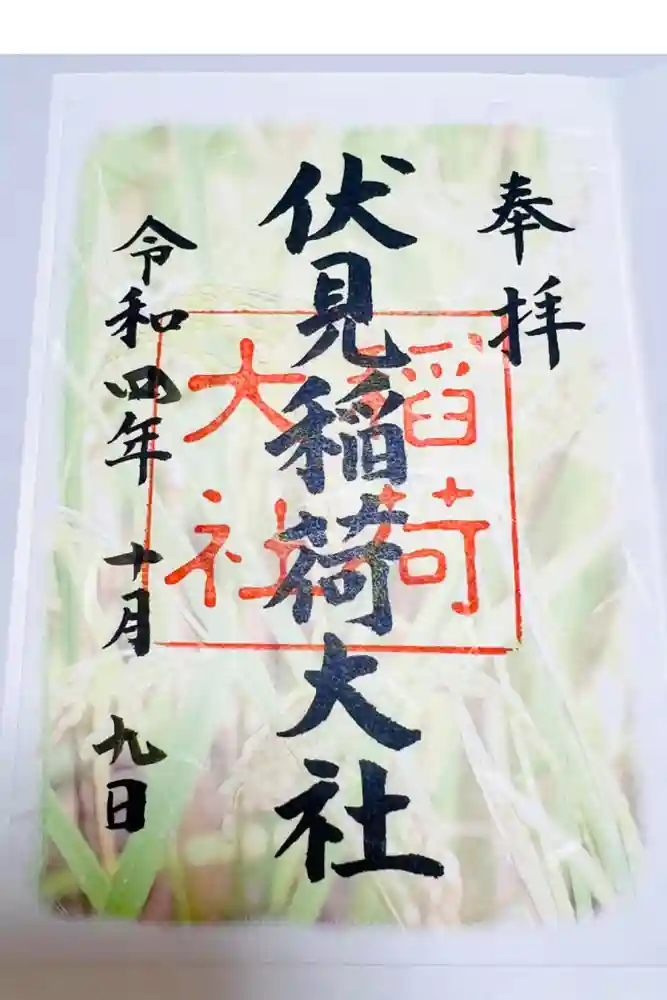 奉拝
伏見稲荷大社
稲荷
大社
令和四年十月九日